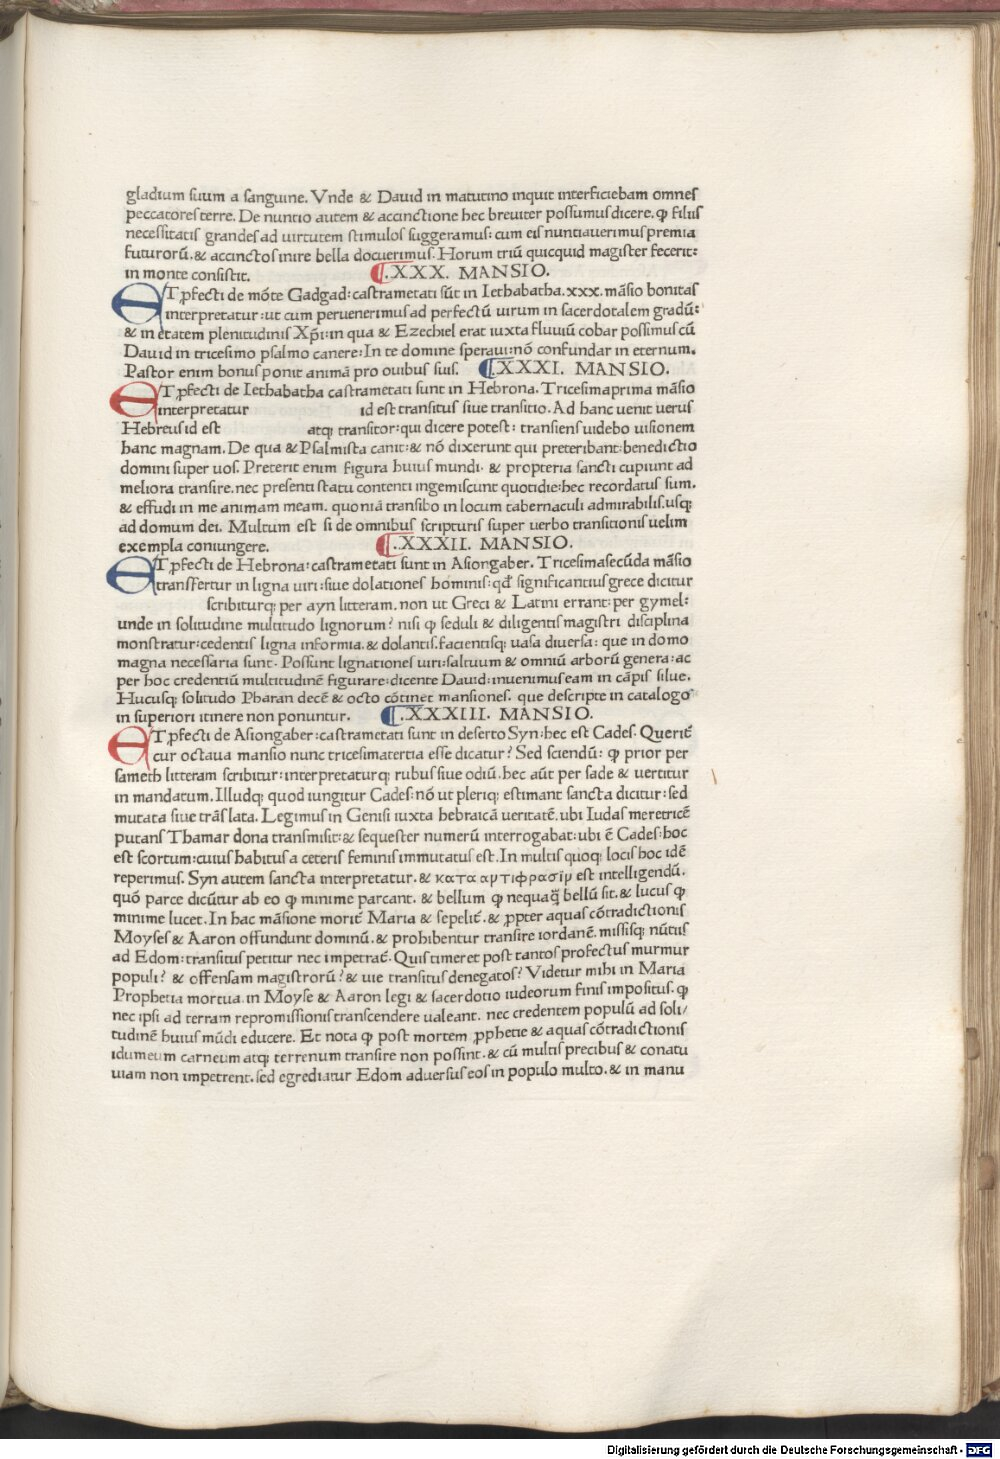 gladium suum a sanguine. Vnde & Dauid in matutino inquit interficiebam omnes
peccatores terre. De nuntio autem & accinctione hec breuiter possumus dicere. ꝙ filiis
necessitatis grandes ad uirtutem stimulos suggeramus: cum eis nuntiauerimus premia
futurorū. & accinctos inire bella docuerimus. Horum triū quicquid magister fecerit:
in monte consistit. ¶.XXX. MANSIO.
ET ꝓfecti de mōte Gadgad: castrametati sūt in Iethabatha. xxx. māsio bonitas
interpretatur: ut cum peruenerimus ad perfectū uirum in sacerdotalem gradū:
& in etatem plenitudinis Xp̄i: in qua & Ezechiel erat iuxta fluuiū cobar possimus cū
Dauid in tricesimo psalmo canere: In te domine speraui: nō confundar in eternum.
Pastor enim bonus ponit animā pro ouibus suis. ¶.XXXI. MANSIO.
ET ꝓfecti de Iethabatha castrametati sunt in Hebrona. Tricesimaprima māsio
interpretatur id est transitus siue transitio. Ad hanc uenit uerus
Hebreus id est atqꝫ transitor: qui dicere potest: transiens uidebo uisionem
hanc magnam. De qua & Psalmista canit: & nō dixerunt qui preteribant: benedictio
domini super uos. Preterit enim figura huius mundi. & propteria sancti cupiunt ad
meliora transire. nec presenti statu contenti ingemiscunt quotidie: hec recordatus sum.
& effudi in me animam meam. quoniā transibo in locum tabernaculi admirabilis. usqꝫ
ad domum dei. Multum est si de omnibus scripturis super uerbo transitionis uelim
exempla coniungere. ¶.XXXII. MANSIO.
ET ꝓfecti de Hebrona: castrametati sunt in Asiongaber. Tricesimasecūda māsio
transfertur in ligna uiri: siue dolationes hominis: qđ significantius grece dicitur
scribiturqꝫ per ayn litteram. non ut Greci & Latini errant: per gymel:
unde in solitudine multitudo lignorum? nisi ꝙ seduli & diligentis magistri disciplina
monstratur: cedentis ligna informia. & dolantis. facientisqꝫ uasa diuersa: que in domo
magna necessaria sunt. Possunt lignationes uiri: saltuum & omniū arborū genera: ac
per hoc credentiū multitudinē figurare: dicente Dauid: inuenimus eam in cāpis silue.
Hucusqꝫ solitudo Pharan decē & octo cōtinet mansiones. que descripte in catalogo
in superiori itinere non ponuntur. ¶.XXXIII. MANSIO.
ET ꝓfecti de Asiongaber: castrametati sunt in deserto Syn: hec est Cades. Querit̄
cur octaua mansio nunc tricesimatertia esse dicatur? Sed sciendū: ꝙ prior per
sameth litteram scribitur: interpretaturqꝫ rubus siue odiū. hec aūt per sade & uertitur
in mandatum. Illudqꝫ quod iungitur Cades: nō ut pleriqꝫ estimant sancta dicitur: sed
mutata siue trāslata. Legimus in Genesi iuxta hebraicā ueritatē. ubi Iudas meretricē
putans Thamar dona transmisit: & sequester numerū interrogabat: ubi ē Cades: hoc
est scortum: cuius habitus a ceteris feminis immutatus est. In multis quoqꝫ locis hoc idē
reperimus. Syn autem sancta interpretatur. & κατα αντιφρασιν est intelligendū.
quō parce dicūtur ab eo ꝙ minime parcant. & bellum ꝙ nequaq̄ bellū sit. & lucus ꝙ
minime lucet. In hac māsione morit̄ Maria & sepelit̄. & ꝓpter aquas cōtradictionis
Moyses & Aaron offundunt dominū. & prohibentur transire iordanē. missisqꝫ nūtiis
ad Edom: transitus petitur nec impetrat̄. Quis timeret post tantos profectus murmur
populi? & offensam magistrorū? & uie transitus denegatos? Videtur mihi in Maria
Prophetia mortua. in Moyse & Aaron legi & sacerdotio iudeorum finis impositus. ꝙ
nec ipsi ad terram repromissionis transcendere ualeant. nec credentem populū ad soli/
tudinē huius mūdi educere. Et nota ꝙ post mortem ꝓphetie & aquas cōtradictionis
idumeum carneum atqꝫ terrenum transire non possint. & cū multis precibus & conatu
uiam non impetrent. sed egrediatur Edom aduersus eos in populo multo. & in manu
Digitalisierung gefördert durch die Deutsche Forschungsgemeinschaft - DFG